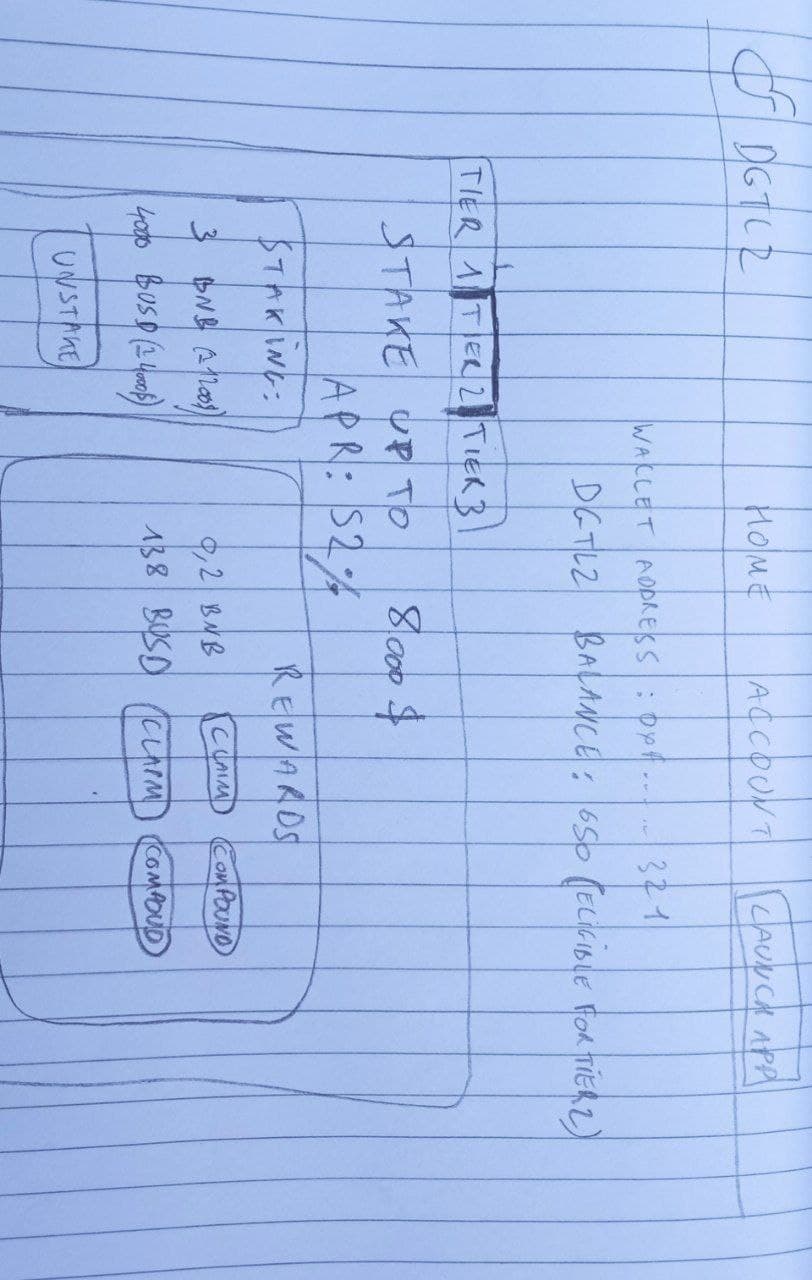 DGTL2 HOME ACCOUNT LAUNCH APP
WALLET ADDRESS : 0xf...... 321
DGTL2 BALANCE: 650 (ELIGIBLE FOR TIER 2)
TIER 1 TIER 2 TIER 3
STAKE UP TO 8.000 $
APR: 52%
STAKING:
3 BNB (≃1200$)
4000 BUSD (≃4000$)
UNSTAKE
REWARDS
0,2 BNB CLAIM COMPOUND
138 BUSD CLAIM COMPOUD